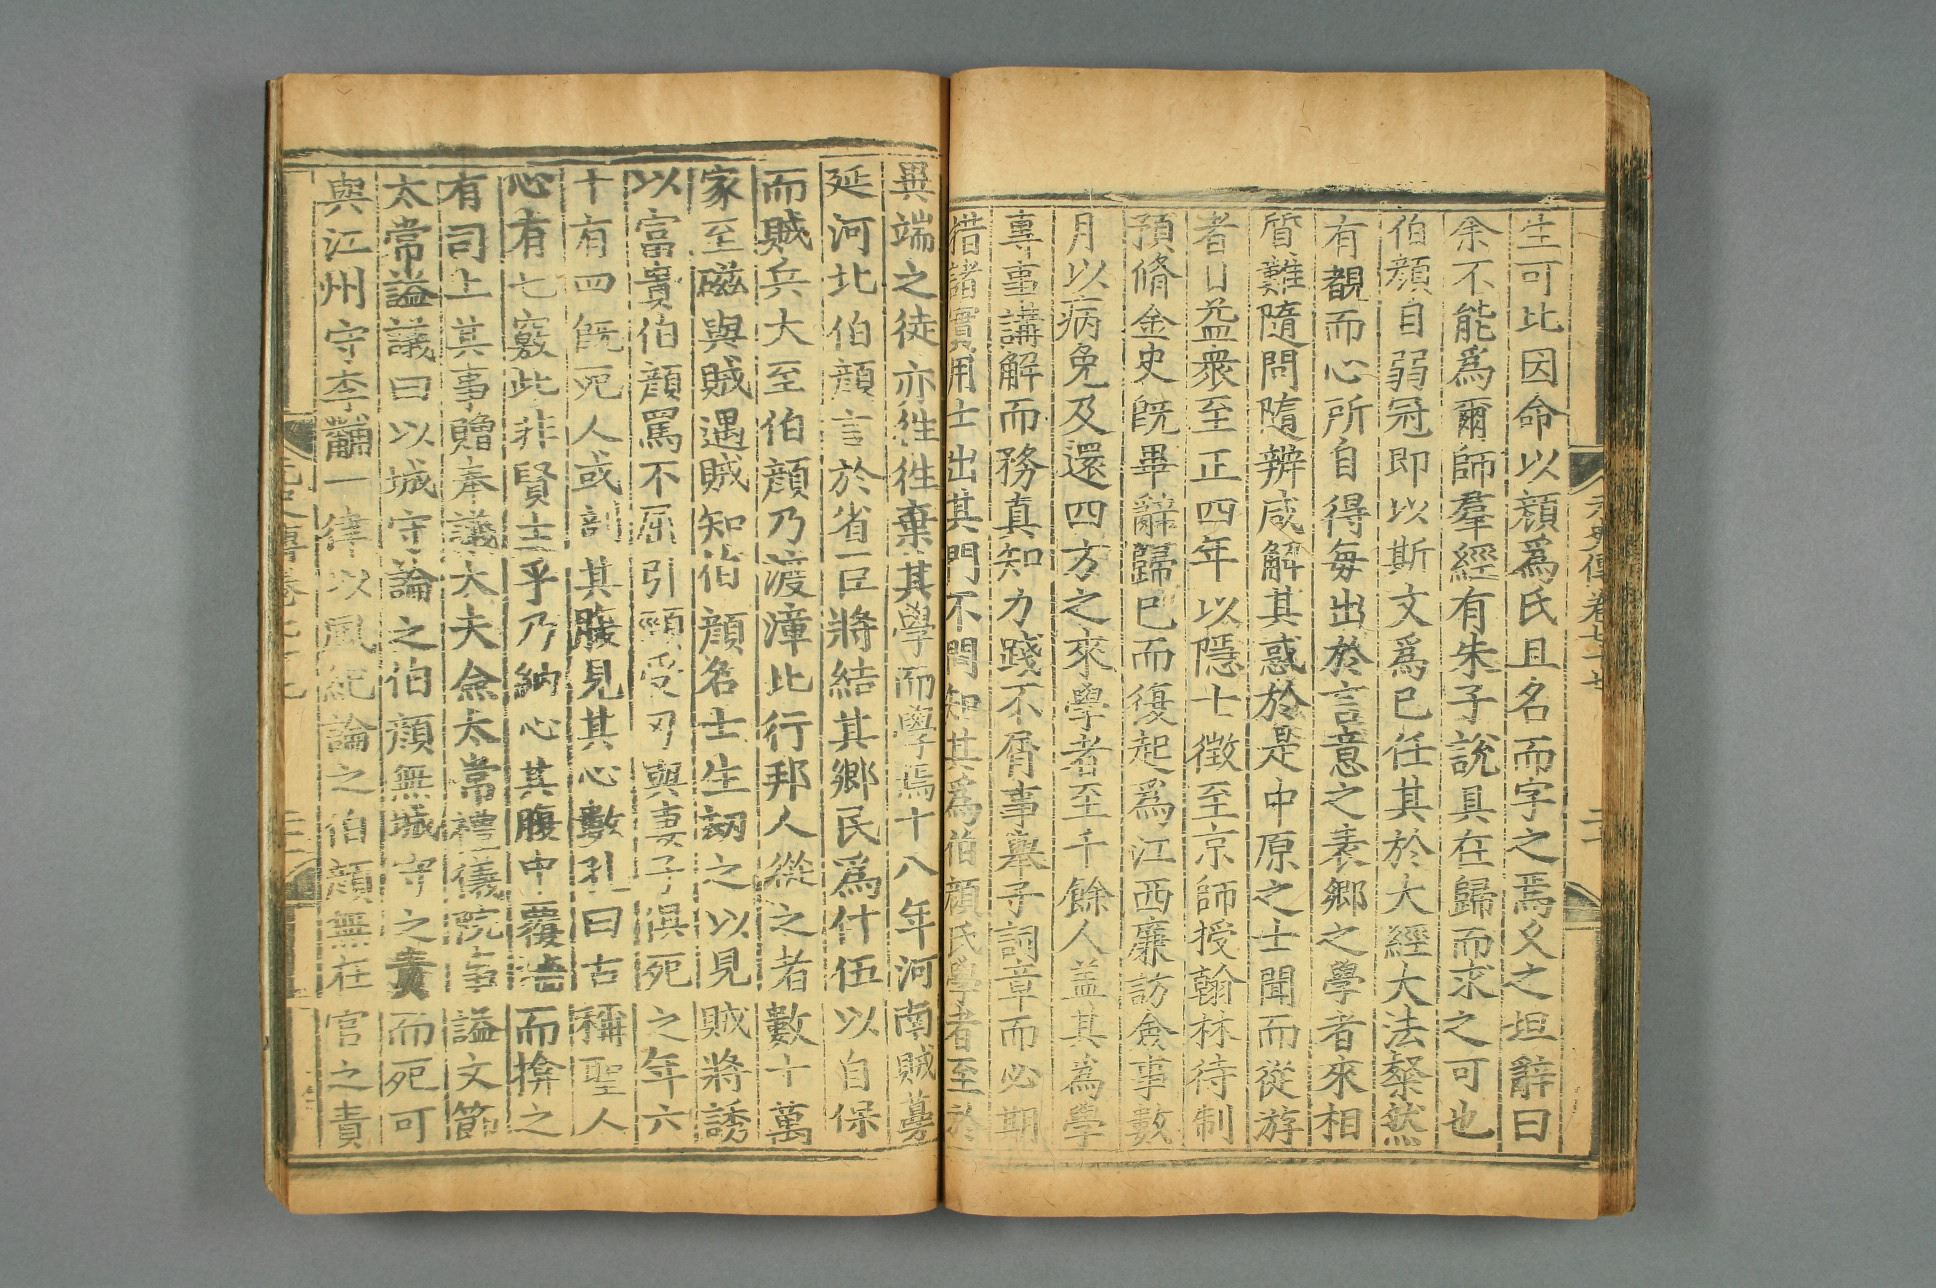 生可比因命以顔爲氏且名而字之焉父之坦辭曰
余不能爲爾師羣經有朱子說具在歸而求之可也
伯顔自弱冠即以斯文爲已任其於大經大法粲然
有覩而心所自得每出於言意之表鄉之學者來相
質難隨問隨辨咸解其惑於是中原之士聞而從游
者日益衆至正四年以隱士徵至京師授翰林待制
預脩金史旣畢辭歸已而復起爲江西廉訪僉事數
月以病免及還四方之來學者至千餘人盖其爲學
專事講解而務真知力踐不屑事舉子詞章而必期
措諸實用士出其門不問知其爲伯顔氏學者至於
異端之徒亦徃徃棄其學而學焉十八年河南賊蔓
延河北伯顔言於省臣將結其鄉民爲什伍以自保
而賊兵大至伯顔乃渡漳北行邦人從之者數十萬
家至磁與賊遇賊知伯顔名士生劫之以見賊將誘
以富貴伯顔罵不屈引頸受刃與妻子俱死之年六
十有四旣死人或剖其腹見其心數孔曰古稱聖人
心有七竅此非賢士乎乃納心其腹中覆墻而揜之
有司上其事贈奉議大夫僉太常禮儀院事謚文節
太常謚議曰以城守論之伯顔無城守之責而死可
與江州守李黼一律以風紀論之伯顔無在官之責
元史傳卷七十七
二十
元史傳卷七十七